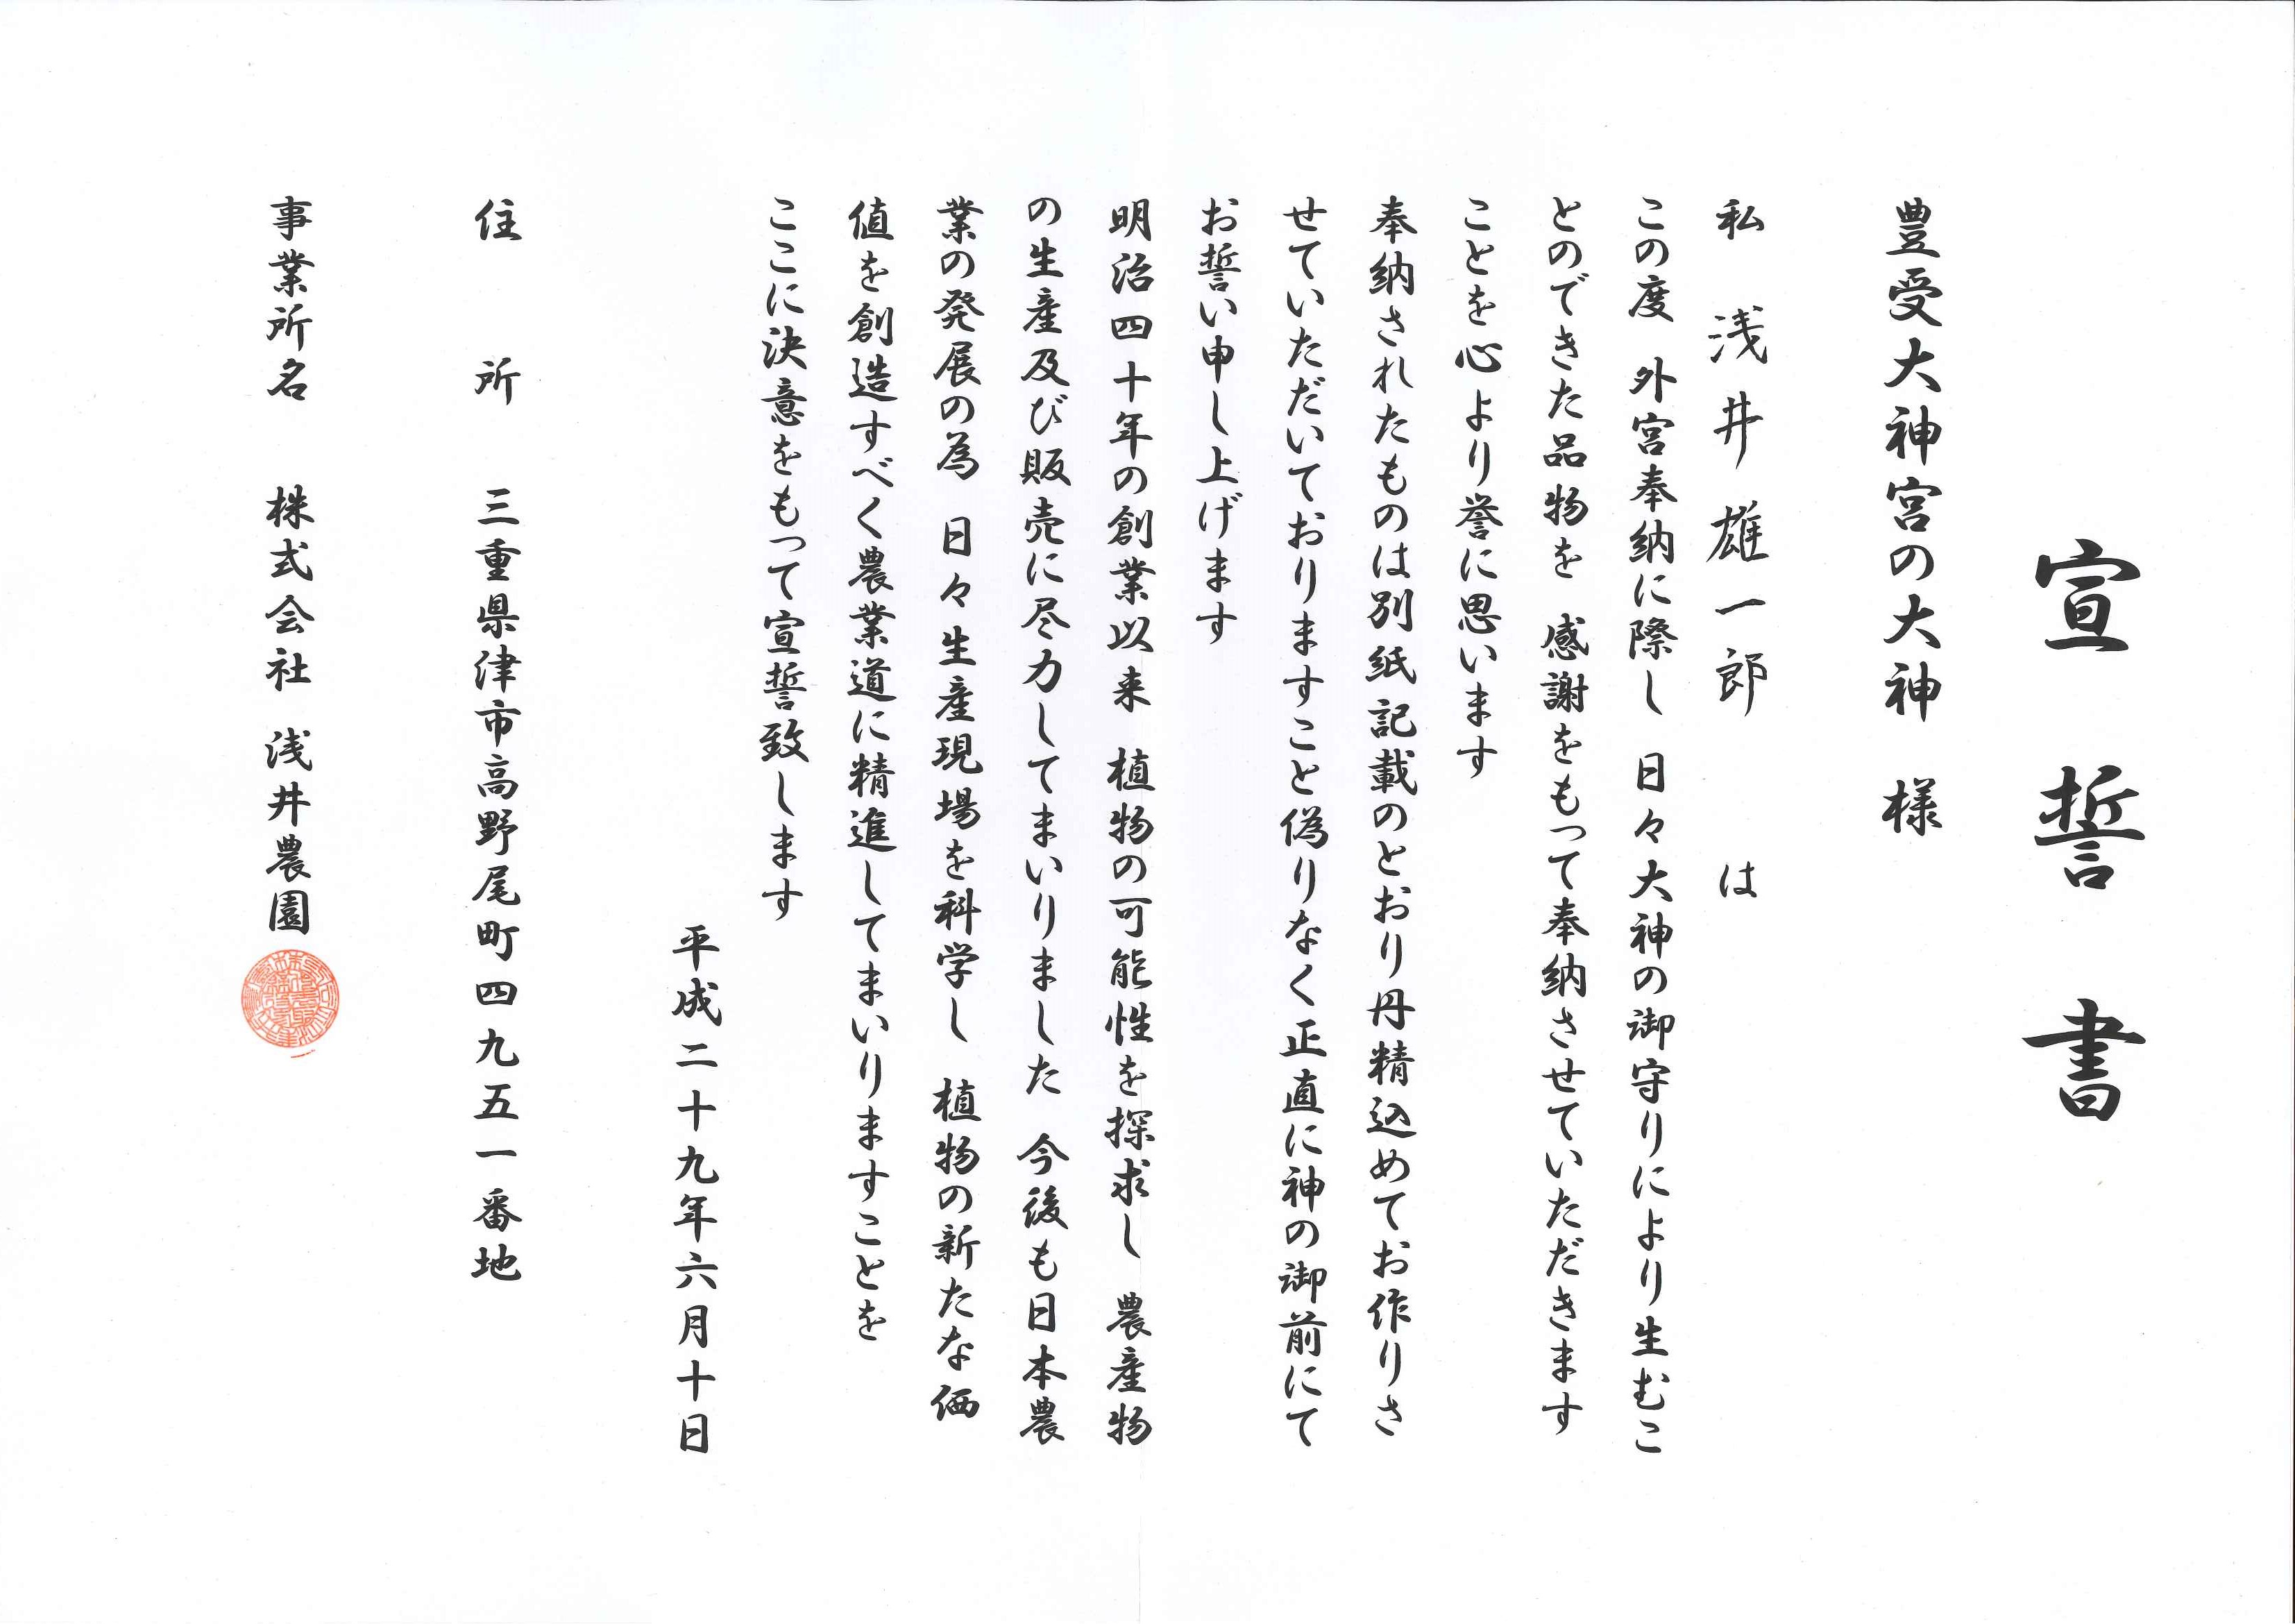 宣誓書
豊受大神宮の大神 様
私 浅井雄一郎 は
この度 外宮奉納に際し 日々大神の御守りにより生むこ
とのできた品物を 感謝をもって奉納させていただきます
ことを心より誉に思います
奉納されたものは別紙記載のとおり丹精込めてお作りさ
せていただいておりますこと偽りなく正直に神の御前にて
お誓い申し上げます
明治四十年の創業以来 植物の可能性を探求し 農産物
の生産及び販売に尽力してまいりました 今後も日本農
業の発展の為 日々生産現場を科学し 植物の新たな価
値を創造すべく農業道に精進してまいりますことを
ここに決意をもって宣誓致します
平成二十九年六月十日
住所 三重県津市高野尾町四九五一番地
事業所名 株式会社 浅井農園